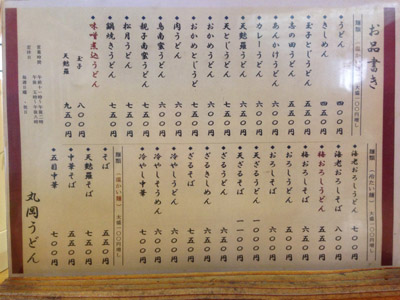 お品書き
麺類(温かい麺) 大盛一〇〇円増し
うどん 四五〇円
きしめん 四五〇円
玉子とじうどん 五五〇円
志の田うどん 五五〇円
あんかけうどん 六〇〇円
カレーうどん 六〇〇円
天麩羅うどん 六五〇円
天とじうどん 七五〇円
おかめうどん 六五〇円
おかめとじうどん 七五〇円
肉うどん 六五〇円
鳥南蛮うどん 六〇〇円
親子南蛮うどん 七五〇円
松月うどん 七五〇円
鍋焼きうどん 七五〇円
味噌煮込うどん
玉子 八〇〇円
天麩羅 九五〇円
営業時間
定休日
麺類(冷たい麺) 大盛一〇〇円増し
海老おろしうどん 七〇〇円
海老おろしそば 八〇〇円
梅おろしうどん 五五〇円
梅おろしそば 六五〇円
おろしうどん 五五〇円
おろしそば 六五〇円
天ざるうどん 一〇〇〇円
天ざるそば 一一〇〇円
ざるうどん 五五〇円
ざるきしめん 五五〇円
ざるそば 六五〇円
冷やしうどん 六〇〇円
冷やしそうめん 六〇〇円
冷やし中華 七〇〇円
麺類(温かい麺) 大盛一〇〇円増し
そば 五五〇円
天麩羅そば 七五〇円
中華そば 五五〇円
五目中華 七〇〇円
丸岡うどん